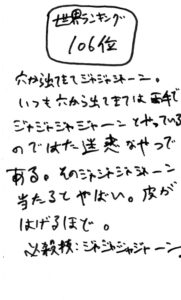 世界ランキング
106位
穴から出てきてジャジャジャーン。
いつも穴から出てきては
ジャジャジャジャーンとやっている
のではた迷惑なやつで
ある。そのジャジャジャジャーン
当たるとやばい。皮が
はげるほど。
必殺技：ジャジャジャジャーン